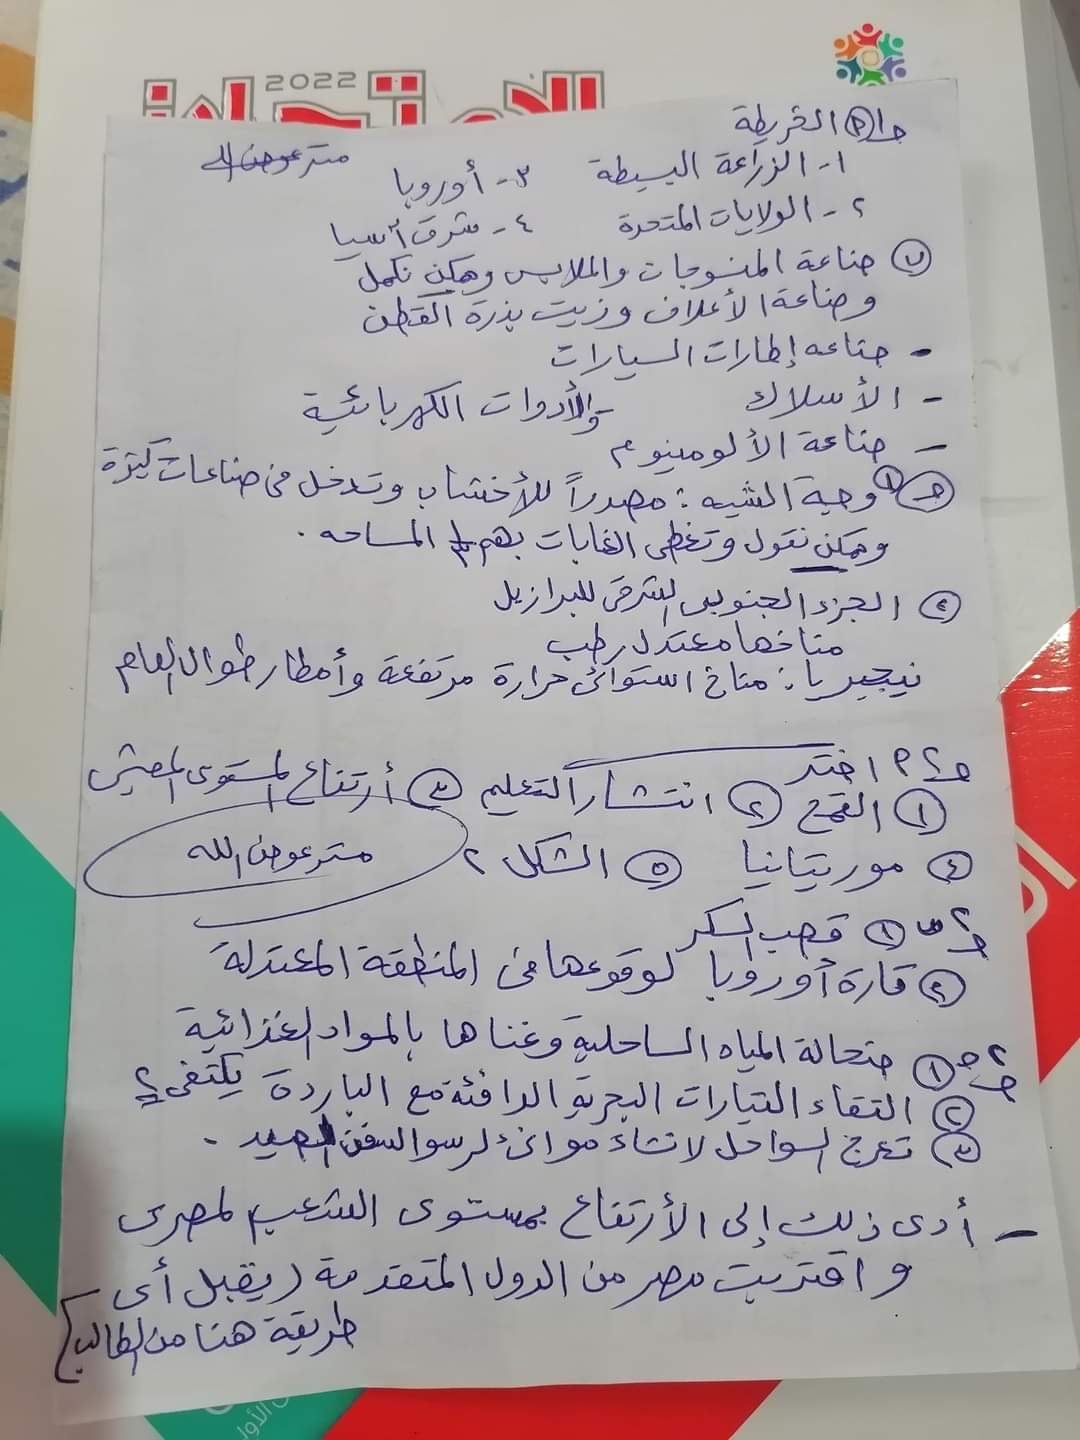 2022
الامتحان
ج١ (٢) الخريطة
مستر عوض الله
١- الزراعة البسيطة ٣- أوروبا
٢- الولايات المتحدة ٤- شرق أسيا
(ب) صناعة المنسوجات والملابس ويمكن نكمل
وصناعة الأعلاف وزيت بذرة القطن
- صناعه إطارات السيارات
- الأسلاك والأدوات الكهربائية
- صناعة الألومنيوم
(ج) ١ وجة الشبه : مصدراً للأخشاب وتدخل فى صناعات كثيرة
ويمكن نقول وتغطى الغابات بهم المساحه .
(٢) الجزء الجنوبى الشرقى للبرازيل
مناخها معتدل رطب
نيجيريا : مناخ استوائى حرارة مرتفعة وأمطار طوال العام
ج٢ ٢ اختر
(١) القمح (٢) انتشار التعليم (٣) أرتفاع المستوى المعيشى
(٤) موريتانيا (٥) الشكل ٢
مستر عوض الله
ج٢ ب (١) قصب السكر
(٢) قارة أوروبا لوقوعها فى المنطقة المعتدلة
ج٢ ج (١) ضحالة المياه الساحلية وغناها بالمواد الغذائية
(٢) التقاء التيارات البحرية الدافئة مع الباردة يكتفى ب٢
(٣) تعرج السواحل لانشاء موانئ لرسو السفن الصيد .
- أدى ذلك إلى الأرتفاع بمستوى الشعب المصرى
واقتربت مصر من الدول المتقدمة (يقبل أى
طريقة هنا من الطالب)